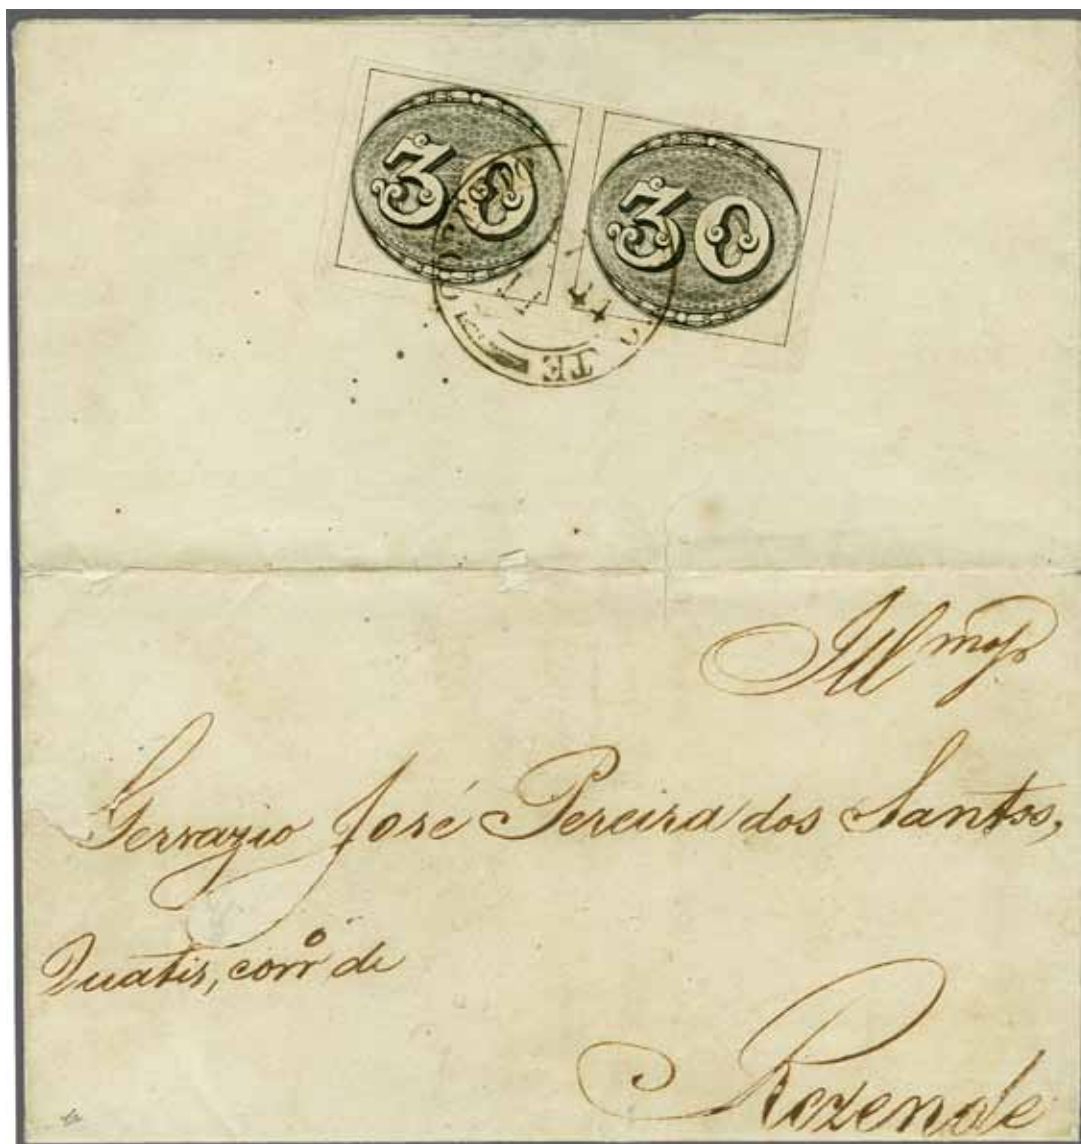 30 30
TE
Illmo Sr
José Pereira dos Santos,
Quatis, corro de
Rezende